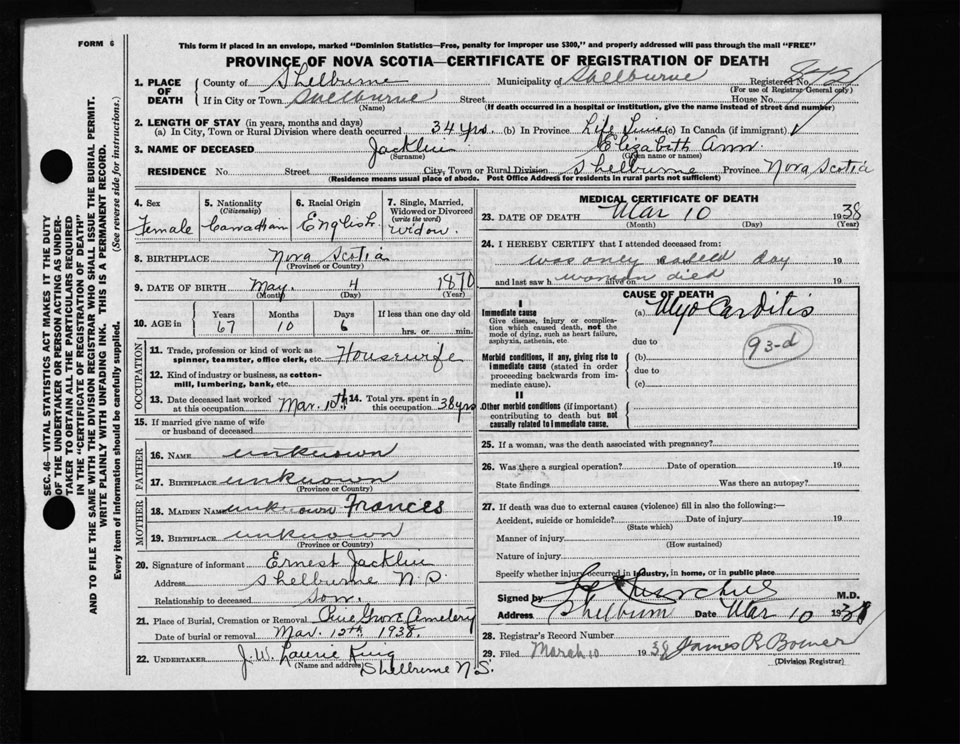 FORM 6
This form if placed in an envelope, marked "Dominion Statistics—Free, penalty for improper use $300," and properly addressed will pass through the mail "FREE"
PROVINCE OF NOVA SCOTIA—CERTIFICATE OF REGISTRATION OF DEATH
SEC. 46—VITAL STATISTICS ACT MAKES IT THE DUTY
OF THE UNDERTAKER OR PERSON ACTING AS UNDER-
TAKER TO OBTAIN ALL THE PARTICULARS REQUIRED
IN THE "CERTIFICATE OF REGISTRATION OF DEATH"
AND TO FILE THE SAME WITH THE DIVISION REGISTRAR WHO SHALL ISSUE THE BURIAL PERMIT.
WRITE PLAINLY WITH UNFADING INK. THIS IS A PERMANENT RECORD.
Every item of information should be carefully supplied. (See reverse side for instructions.)
1. PLACE OF DEATH County of Shelburne Municipality of Shelburne Registered No.
(For use of Registrar General only)
If in City or Town Shelburne Street House No.
(Name) (If death occurred in a hospital or institution, give the name instead of street and number)
2. LENGTH OF STAY (in years, months and days)
(a) In City, Town or Rural Division where death occurred 34 yrs. (b) In Province Life Time (c) In Canada (if immigrant)
3. NAME OF DECEASED Jacklin Elizabeth Ann.
(Surname) (Given name or names)
RESIDENCE No. Street City, Town or Rural Division Shelburne Province Nova Scotia
(Residence means usual place of abode. Post Office Address for residents in rural parts not sufficient)
4. Sex Female
5. Nationality (Citizenship) Canadian
6. Racial Origin English
7. Single, Married, Widowed or Divorced (write the word) Widow.
8. BIRTHPLACE Nova Scotia
(Province or Country)
9. DATE OF BIRTH May. 4 1870
(Month) (Day) (Year)
10. AGE in Years Months Days If less than one day old
67 10 6 hrs. or min.
OCCUPATION
11. Trade, profession or kind of work as spinner, teamster, office clerk, etc. Housewife
12. Kind of industry or business, as cotton-mill, lumbering, bank, etc.
13. Date deceased last worked at this occupation Mar. 10th 14. Total yrs. spent in this occupation 38 yrs
15. If married give name of wife or husband of deceased
FATHER
16. NAME unknown
17. BIRTHPLACE unknown
(Province or Country)
MOTHER
18. MAIDEN NAME unknown Frances
19. BIRTHPLACE unknown
(Province or Country)
20. Signature of informant Ernest Jacklin
Address Shelburne N.S.
Relationship to deceased Son.
21. Place of Burial, Cremation or Removal Pine Grove Cemetery
Date of burial or removal Mar. 12th 1938.
22. UNDERTAKER J. W. Laurie King
(Name and address) Shelburne N.S.
MEDICAL CERTIFICATE OF DEATH
23. DATE OF DEATH Mar 10 1938
(Month) (Day) (Year)
24. I HEREBY CERTIFY that I attended deceased from:
was only called day
and last saw h alive on woman died
CAUSE OF DEATH
I
Immediate cause
Give disease, injury or complication which caused death, not the mode of dying, such as heart failure, asphyxia, asthenia, etc.
(a) Myo Carditis
due to
93-d
Morbid conditions, if any, giving rise to immediate cause (stated in order proceeding backwards from immediate cause).
(b)
due to
(c)
II
Other morbid conditions (if important) contributing to death but not causally related to immediate cause.
25. If a woman, was the death associated with pregnancy?
26. Was there a surgical operation? Date of operation 19
State findings Was there an autopsy?
27. If death was due to external causes (violence) fill in also the following:—
Accident, suicide or homicide? Date of injury 19
(State which)
Manner of injury
(How sustained)
Nature of injury
Specify whether injury occurred in industry, in home, or in public place
Signed by M.D.
Address Shelburn Date Mar 10 1938
28. Registrar's Record Number
29. Filed March 10 1938 James R Bower
(Division Registrar)